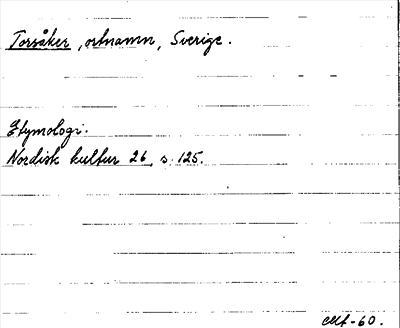 Torsåker, ortnamn, Sverige.
Etymologi.
Nordisk kultur 26, s. 125.
-60.